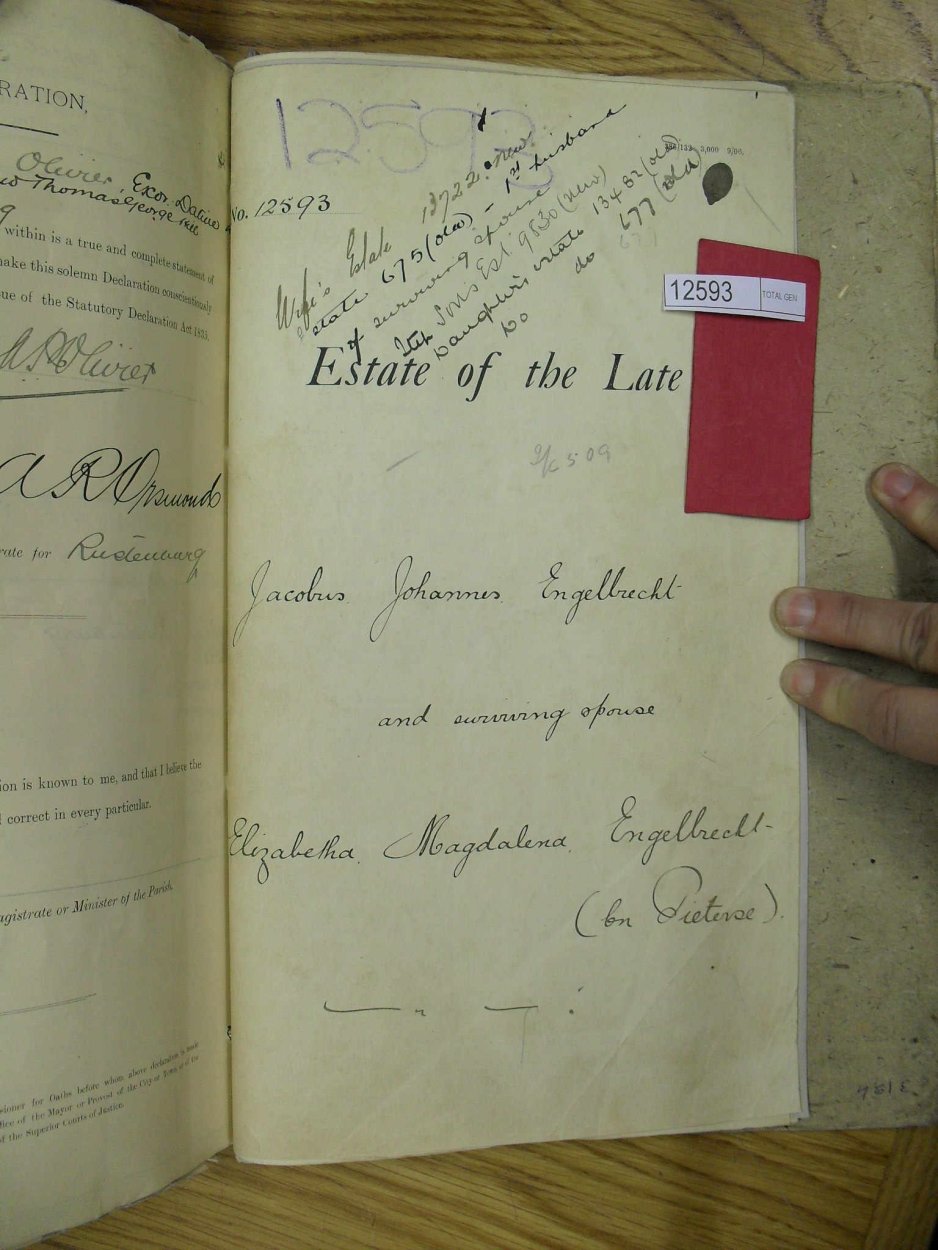 RATION,
Olivier, Exor. Dative
Thomas George
within is a true and complete statement of
make this solemn Declaration conscientiously
ue of the Statutory Declaration Act 1835.
A R Olivier
A R Orsmond
rate for Rustenburg
ion is known to me, and that I believe the
correct in every particular.
agistrate or Minister of the Parish.
sioner for Oaths before whom above declaration is made
fice of the Mayor or Provost of the City or Town
of the Superior Courts of Justice.
12593
3,000 9/06.
No. 12593
Wife's Estate 13722 new.
state 675 (old) - 1st husband
of surviving spouse
Step Sons Est. 9830 (new)
Daughters estate 13482 (old)
Do do 677 (old)
12593 TOTAL GEN
Estate of the Late
509
Jacobus Johannes Engelbrecht
and surviving spouse
Elizabetha Magdalena Engelbrecht
(bn Pieterse).